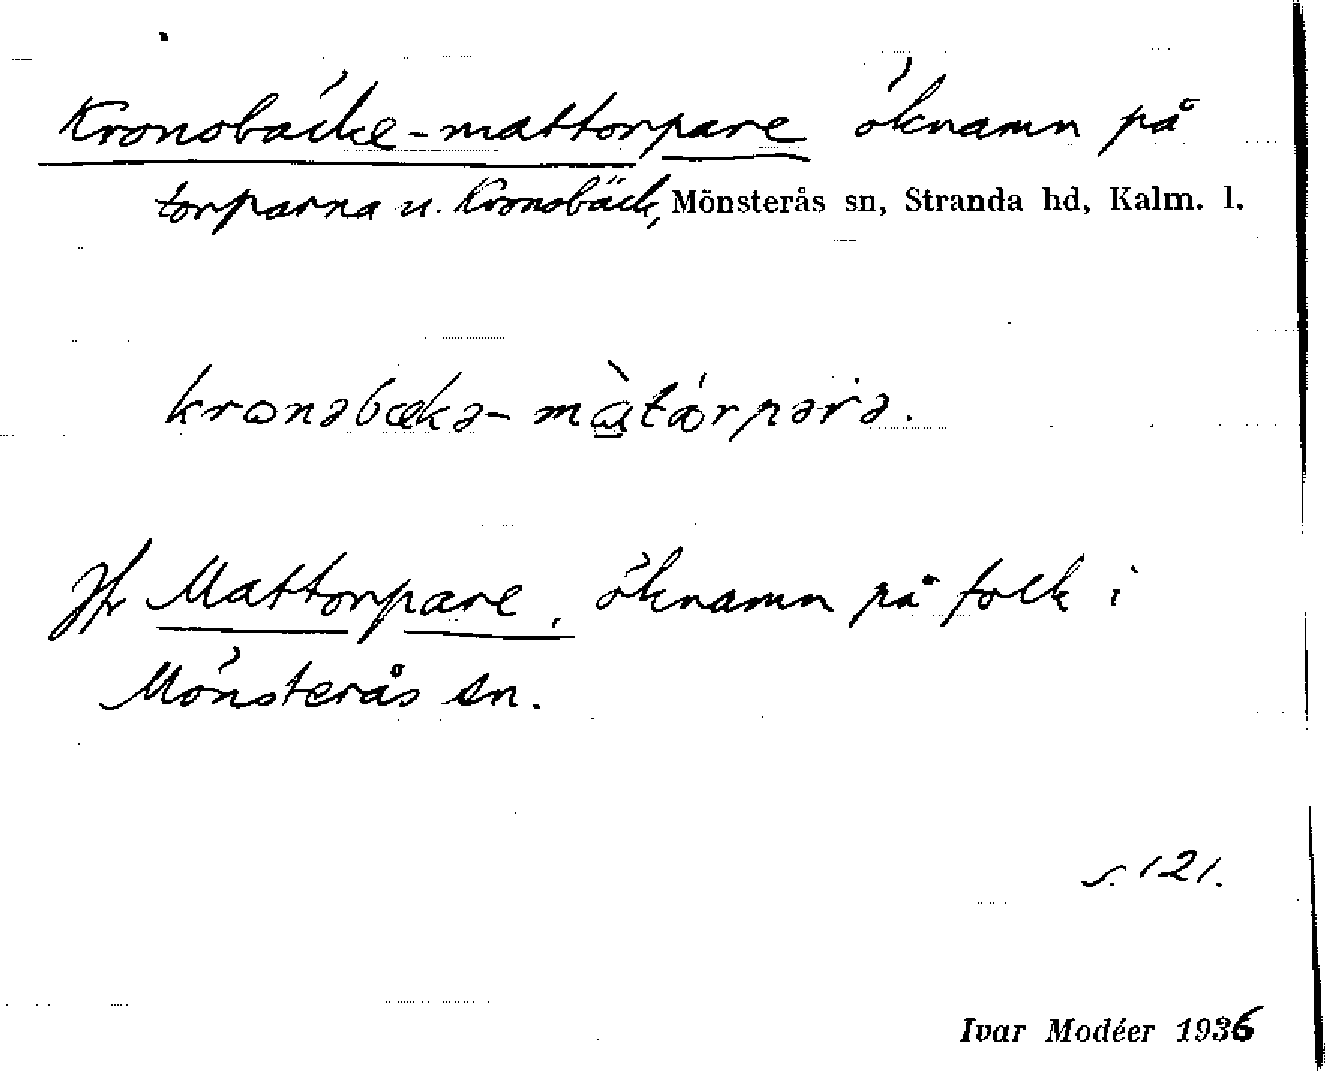 Kronobäcke-mattorpare öknamn på
torparna u. Kronobäck, Mönsterås sn, Stranda hd, Kalm. l.
kronəbækə- màtórpərə.
Jfr Mattorpare, öknamn på folk i
Mönsterås sn.
s. 121.
Ivar Modéer 1936